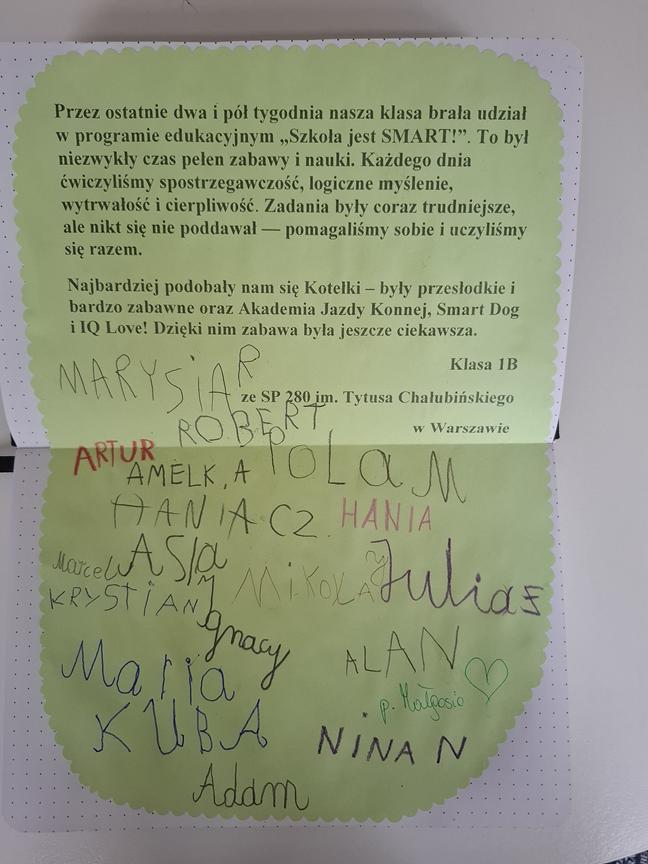 Przez ostatnie dwa i pół tygodnia nasza klasa brała udział
w programie edukacyjnym „Szkoła jest SMART!”. To był
niezwykły czas pełen zabawy i nauki. Każdego dnia
ćwiczyliśmy spostrzegawczość, logiczne myślenie,
wytrwałość i cierpliwość. Zadania były coraz trudniejsze,
ale nikt się nie poddawał — pomagaliśmy sobie i uczyliśmy
się razem.
Najbardziej podobały nam się Kotełki – były przesłodkie i
bardzo zabawne oraz Akademia Jazdy Konnej, Smart Dog
i IQ Love! Dzięki nim zabawa była jeszcze ciekawsza.
Klasa 1B
MARYSIA R
ze SP 280 im. Tytusa Chałubińskiego
ROBERT
w Warszawie
ARTUR
AMELKA
POLA M
HANIA CZ.
HANIA
Marcel
ASIA
MiKOŁAJ
Julia
KRYSTIAN
Ignacy
ALAN
Maria
p. Małgosia
KUBA
NINA N
Adam